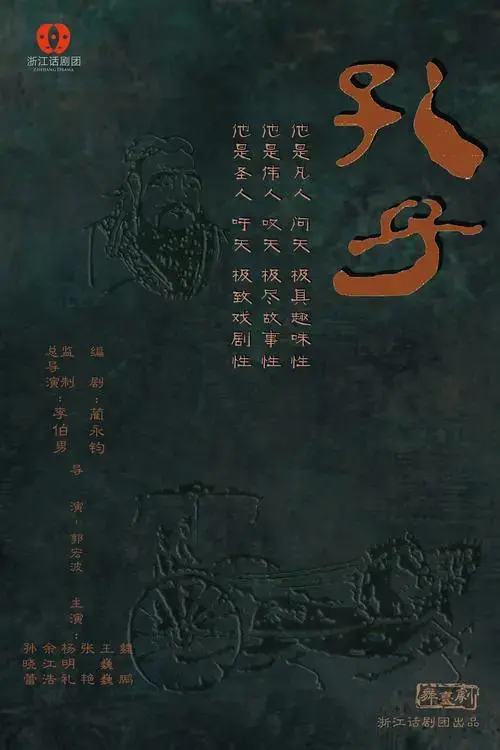 浙江话剧团
ZHEJIANG DRAMA
孔子
他是凡人 问天 极具趣味性
他是伟人 叹天 极尽故事性
他是圣人 吁天 极致戏剧性
编剧：蔺永钧
监制
总导演：李伯男
导演：郭宏波
主演：
孙晓蕾
余江浩
杨明礼
张艳
王巍巍
魏鹏
舞臺劇
浙江话剧团出品